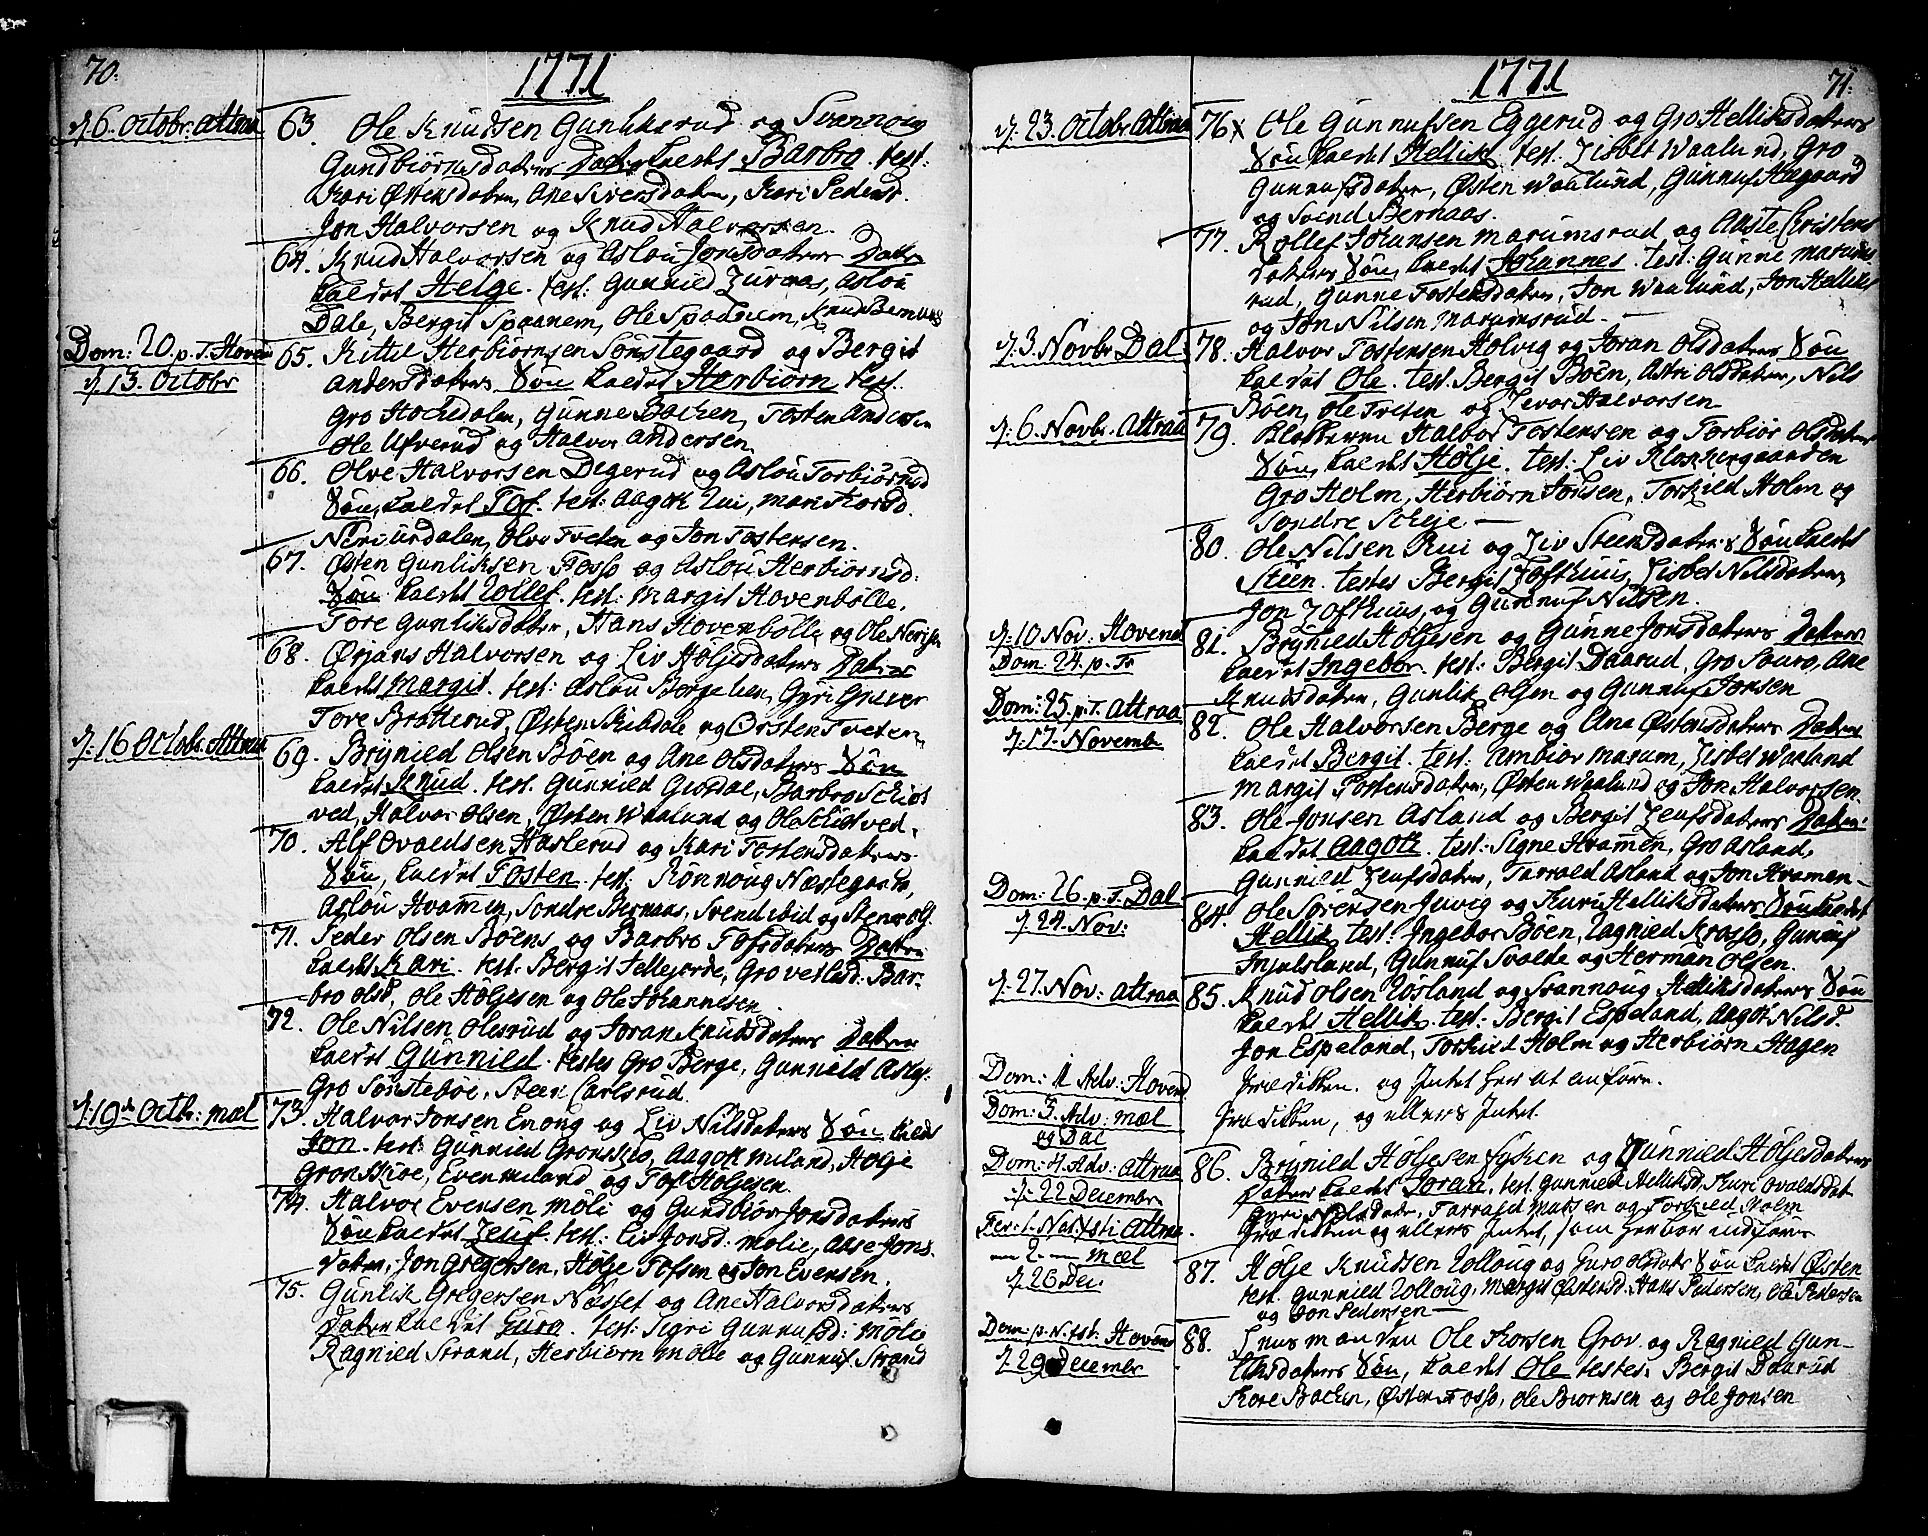 70.
1771
d. 6. Octobr. Attraa
63. Ole Knudsen Gunliksrud og Svannoug
Gundbiørnsdaters Dater kaldet Barbro. test:
Kari Østensdater, Ane Siversdater, Kari Pedersd.
Jon Halvorsen og Knud Halvorsen.
64. Knud Halvorsen og Aslou Jonsdaters Dater
kaldet Helge. test: Gunnied Zurnas, Aslou
Dale, Bergit Spaanem, Ole Spaanem, Knud Bernaas
Dom: 20. p. T. Hoven
d. 13. Octobr
65. Kittil Herbiørnsen Sønstegaard og Bergit
Andersdaters Søn kaldet Herbiørn test.
Gro Hochedalen, Gunne Bachen, Tosten Andersen
Ole Ufverud og Halvor Andersen.
66. Olve Halvorsen Degerud og Aslou Torbiørnsd
Søn, kaldet Tof. test: Aagott Qui, Mari Thorsd.
Neri urdalen, Olve Tveten og Jon Tostensen.
67. Østen Gunliksen Fosso og Aslou Herbiørnsd:
Søn kaldet Rollef. test: Margit Hovenbolle,
Tore Gunliksdater, Hans Hovenbolle og Ole Nerisen
68. Ørjans Halvorsen og Liv Høljesdaters Dater
kaldet Margit. test: Aslou Bergelien, Gyri Graver
Tore Bratterud, Østen Skieldale og Orsten Tveten,
d. 16 Octobr. Attraa
69. Brynild Olsen Bøen og Ane Olsdaters Søn
kaldet Knud. test. Gunnied Giosdal, Barbro Schiot
ved, Halvor Olsen, Østen Waalund og Ole Schiotved.
70. Alf Ovaldsen Haslerud og Kari Tostensdaters
Søn, kaldet Tosten. test: Rønnoug Næstegaard,
Aslou Hvamen, Sondre Bernaas, Svend ibid og Stener Ols.
71. Peder Olsen Bøens og Barbro Tofsdaters Dater
kaldet Kari. test. Bergit Tellejorde, Gro Vetlesd: Bar-
bro Olsd, Ole Høljesen og Ole Johannesen.
72. Ole Nilsen Olesrud og Joran Knudsdaters Dater
kaldet Gunnild. testes Gro Berge, Gunnield Asles:
Gro Sønstebøe, Steen Carlsrud.
d. 19de Octbr: Mæl
73. Halvor Jonsen Enong og Liv Nilsdaters Søn kaldt
Jon. test: Gunnied Gronskio, Aagott Miland, Holje
Gronskioe, Even Miland og Tof Holjesen.
74. Halvor Evensen Moli og Gundbior Jonsdaters
Søn kaldet Zeluf. test: Liv Jonsd: Molie, Aase Jons.
dater, Jon Gregersen, Hølje Tofsen og Jon Evensen.
75. Gunlik Gregersen Næset og Ane Halvorsdaters
Dater kaldet Guro. test: Sigri Gunnufsd: Møli
Ragnied Strand, Herbiørn Mølie og Gunnuf Strand
1771
71.
d. 23. Octobr Attraa
76 x Ole Gunnufsen Eggerud og Gro Helliksdaters
Søn kaldet Hellik test: Lisbet Waalund, Gro
Gunnufsdater, Østen Waalund, Gunnuf Høgaard
og Svend Bernaas.
77. Rollef Johansen Marumsrud og Anste Christens
daters Søn, kaldet Johannes. test: Gunne Marums
rud, Gunne Tostensdater, Jon Waalund, Jon Helliks
og Jon Nilsen Marumsrud.
d. 3. Novbr Dal
78. Halvor Tostensen Holvig og Joran Olsdaters Søn
kaldet Ole. test. Bergit Bøen, Astri Olsdater, Nils
Bøen, Ole Tveten og Levor Halvorsen
d. 6. Novbr. Attraa
79. Klokkeren Halvor Tostensen og Torbior Olsdaters
Søn, kaldet Hølje. test: Liv Klokkergaarden
Gro Holm, Herbiørn Jonsen, Torkield Holm og
Sondre Scheje
80. Ole Nilsen Rui og Liv Steensdaters Søn kaldet
Steen. testes Bergit Lofthuus, Lisbet Nilsdater,
Jon Lofthuus, og Gunnuf Nilsen.
d. 10 Nov. Hovend
Dom 24. p. Tr
81. Brynied Høljesen og Gunne Jonsdaters Dater
kaldet Ingebor. test: Bergit Daarud, Gro Souro, Ane
Knudsdater, Gunlik Olsen og Gunnuf Jonsen
Dom: 25. p. T. Attraa
d. 17. Novembr
82. Ole Halvorsen Berge og Ana Østensdaters Dater
kaldet Bergit. test: Ambior Marum, Lisbet Waaland
Margit Tostensdater, Østen Waalund og Jon Halvorsen.
83. Ole Jonsen Asland og Bergit Leufsdaters Dater
kaldet Aagott. test: Signe Hvamen, Gro Asland,
Gunnield Leufsdater, Tarrald Asland og Jon Hvamen
Dom: 26. p. T. Dal
d. 24. Nov:
84. Ole Sørensen Juvig og Kuri Helliksdaters Søn kaldet
Hellik. test: Ingebor Bøen, Ragnied Krosso, Gunuf
Injulsland, Gunnuf Svalde og Herman Olsen.
d. 27. Nov: Attraa
85. Knud Olsen Rosland og Svannoug Helliksdaters Søn
kaldet Hellik. test: Bergit Espeland, Aagot Nilsd.
Jon Espeland, Torkield Holm og Herbiørn Hagen
Dom: 1 Adv. Hovend
Prædikken. og Intet her at anføre.
Dom: 3. Adv: Mæl
og Dal
Prædikken, og ellers Intet.
Dom: 4. Adv: Attraa
d. 22 Decembr
86. Brynield Høljesen Sysken og Gunnield Høljesdaters
Dater kaldet Joran. test. Gunnield Helliksd. Kuri Ovaldsdat
Gyri Nilsdater, Tarrald Matsen og Torkield Holm
Fer: 1. Nat. Xsti Attraa.
Prædikken og ellers Intet, som her bør indføres
2. Mæl
d. 26 Dec.
87. Hølje Knudsen Rolloug og Guro Olsdaters Søn kaldet Østen
test. Gunnield Rolloug, Margit Østensd. Hans Pedersen, Ole Pedersen
og Jon Pedersen
Dom p. N. fst. Hovend
d. 29 December
88. Ole Thorsen Grov. og Ragnied Gun-
liksdaters Søn, kaldet Ole testes. Bergit Daarud
Thore Bachen, Østen Fosso, Ole Biørnsen og Ole Jonsen